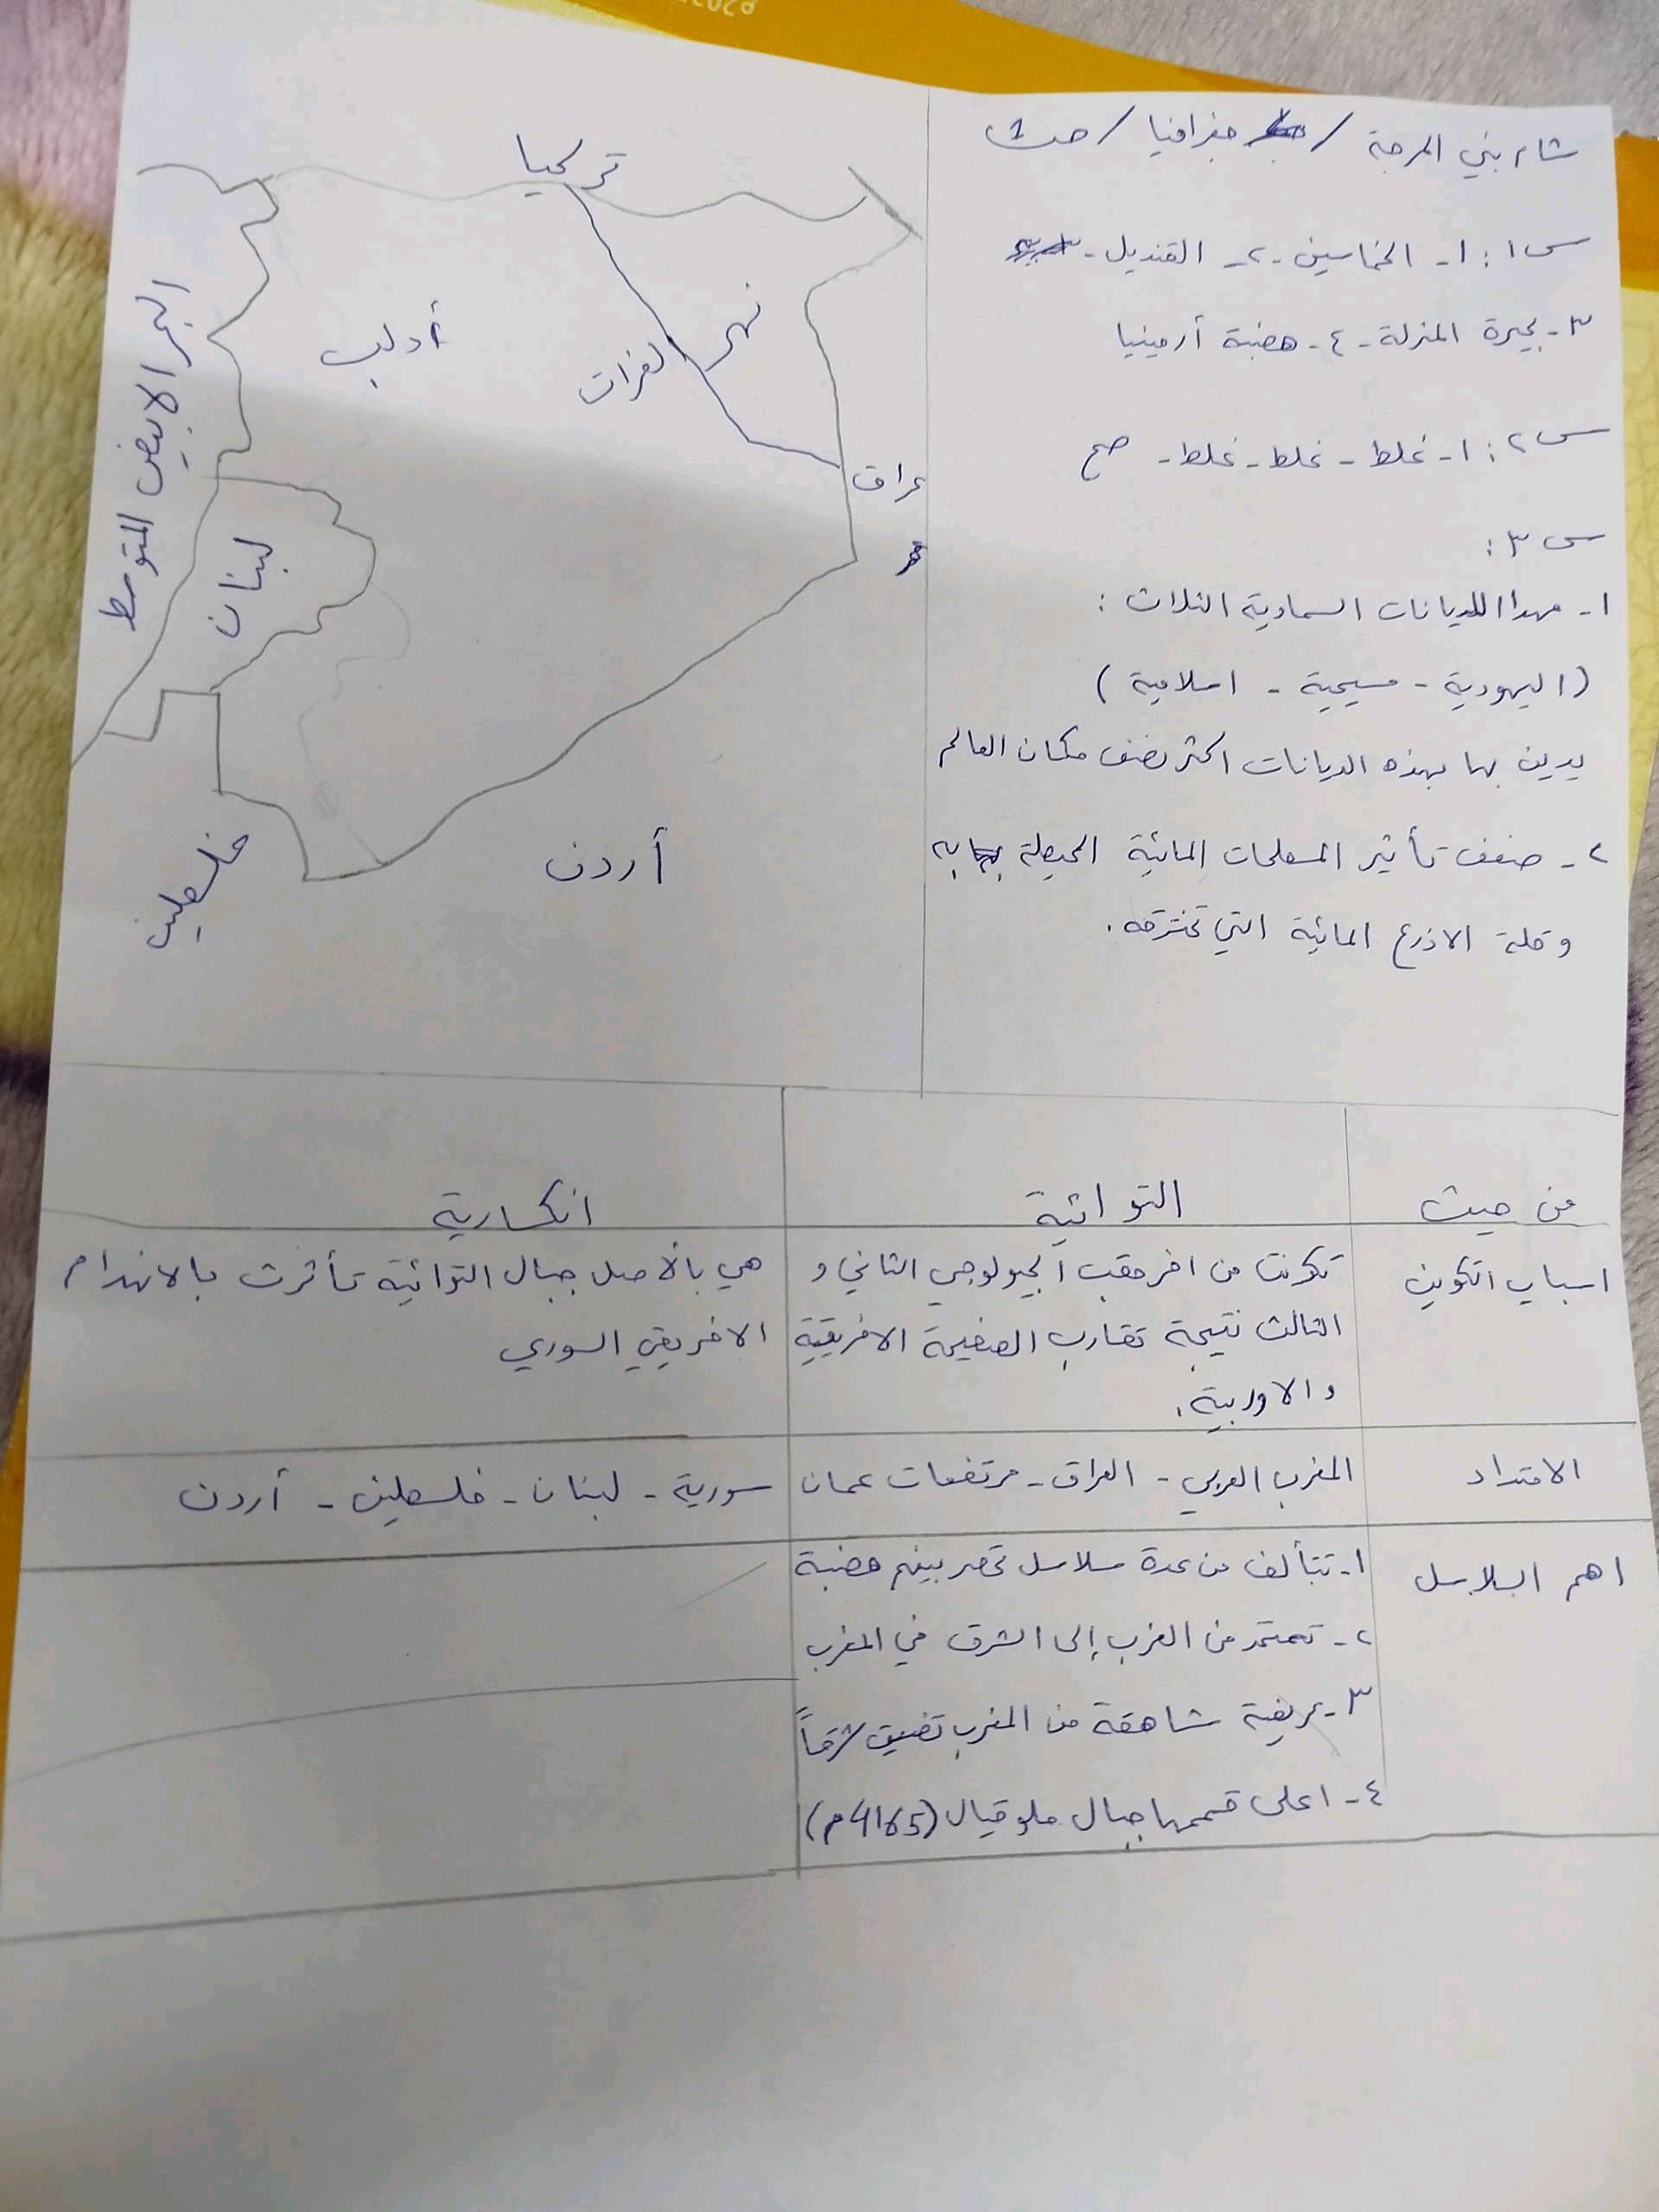 بني المرجة / جغرافيا /
س١: ١- الخماسين -٢- القنديل -
٣- بحيرة المنزلة - ٤- هضبة أرمينيا
س٢: ١- غلط - غلط - غلط - صح
س٣:
١- مهدا للديانات السماوية الثلاث:
(اليهودية - مسيحية - اسلامية)
يدين بها بهذه الديانات اكثر نصف سكان العالم
٢- ضعف تأثير المسطحات المائية المحيطة به
وقلة الاذرع المائية التي تخترقه.
تركيا
البحر الابيض المتوسط
أدلب
نهر الفرات
عراق
لبنان
فلسطين
أردن
من حيث
التوائية
انكسارية
اسباب التكوين
تكونت من اخر حقب الجيولوجي الثاني و
الثالث نتيجة تقارب الصفيحة الافريقية
والاوربية.
هي بالأصل جبال التوائية تأثرت بالانهدام
الافريقي السوري
الامتداد
المغرب العربي - العراق - مرتفعات عمان
سورية - لبنان - فلسطين - أردن
اهم السلاسل
١- تتألف من عدة سلاسل تحصر بينهم هضبة
٢- تمتد من الغرب إلى الشرق في المغرب
٣- عريضة شاهقة من المغرب تضيق شرقاً
٤- اعلى قممها جبال (4165م)